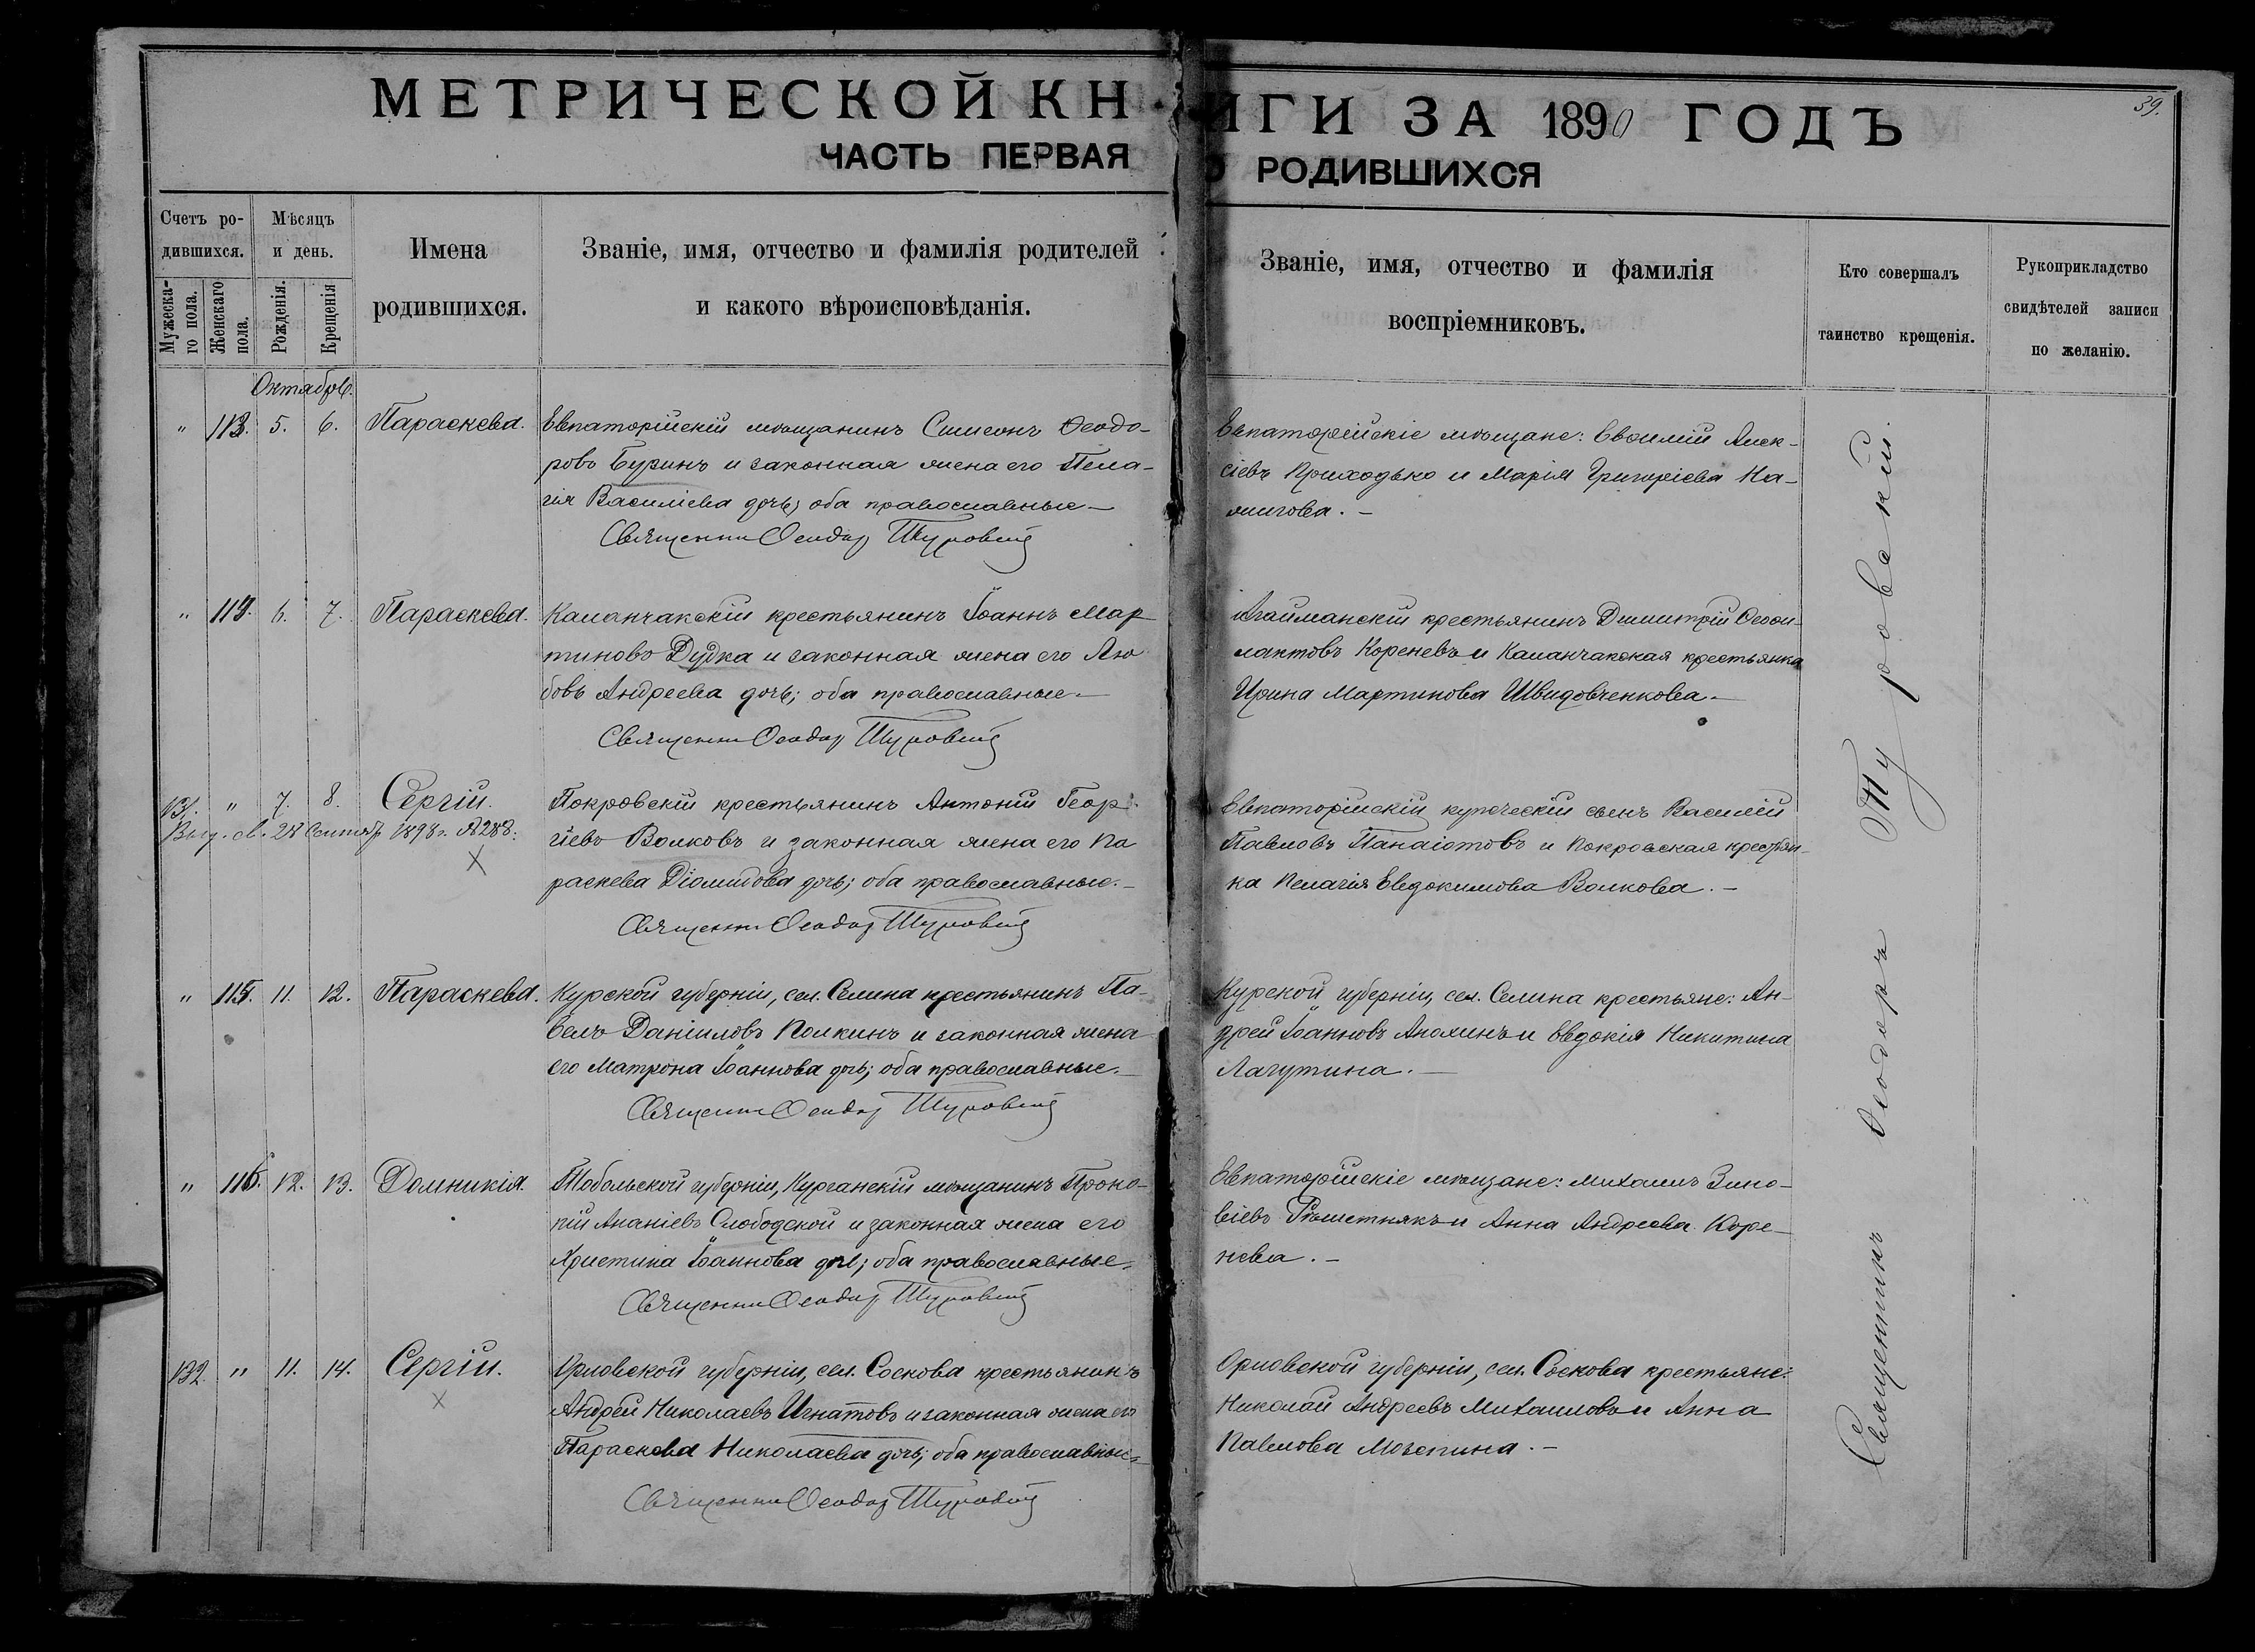 МЕТРИЧЕСКОЙ КНИГИ ЗА 1890 ГОДЪ
39.
ЧАСТЬ ПЕРВАЯ О РОДИВШИХСЯ
Счетъ родившихся.
Мужескаго пола.
Женскаго пола.
Мѣсяцъ и день.
Рожденія.
Крещенія
Имена родившихся.
Званіе, имя, отчество и фамилія родителей
и какого вѣроисповѣданія.
Званіе, имя, отчество и фамилія
воспріемниковъ.
Кто совершалъ
таинство крещенія.
Рукоприкладство
свидѣтелей записи
по желанію.
Октябрь.
" 113. 5. 6. Параскева.
Евпаторійскій мѣщанинъ Симеонъ Ѳеодо-
ровъ Буринъ и законная жена его Пела-
гія Василіева дочь; оба православные.
Священни Ѳеодор Туровскій
Евпаторійскіе мѣщане: Евѳимій Алек-
сіевъ Приходько и Марія Григоріева Ка-
" 114. 6. 7. Параскева.
Каланчакскій крестьянинъ Іоаннъ Мар
тиновъ Дудка и законная жена его Лю
бовь Андреева дочь; оба православные.
Священни Ѳеодор Туровскій
Агайманскій крестьянинъ Димитрій Ѳеофи-
лактовъ Кореневъ и Каланчакская крестьянка
Ирина Мартинова Швидовченкова.
131. " 7. 8. Сергій.
Выд. св. 28 Сентяб 1898 г. №288.
Х
Покровскій крестьянинъ Антоній Геор
гіевъ Волковъ и законная жена его Па
раскева Діомидова дочь; оба православные.
Священни Ѳеодор Туровскій
Евпаторійскій купеческій сынъ Василій
Павловъ Панаіотовъ и Покровская крестьян-
ка Пелагія Евдокимова Волкова.
" 115. 11. 12. Параскева.
Курской губерніи, сел. Селина крестьянинъ Па-
велъ Даніиловъ Полкинъ и законная жена
его Матрона Іоаннова дочь; оба православные.
Священни Ѳеодор Туровскій
Курской губерніи, сел. Селина крестьяне: Ан-
дрей Іоанновъ Анохинъ и Евдокія Никитина
Лагутина.
" 116. 12. 13. Домникія.
Тобольской губерніи, Курганскій мѣщанинъ Проко-
пій Ананіевъ Слободской и законная жена его
Христина Іоаннова дочь; оба православные.
Священни Ѳеодор Туровскій
Евпаторійскіе мѣщане: Михаилъ Зино-
віевъ Рѣшетнякъ и Анна Андреева Коре-
нева.
132. " 11. 14. Сергій.
Х
Орловской губерніи, сел. Соскова крестьянинъ
Андрей Николаевъ Игнатовъ и законная жена его
Параскева Николаева дочь; оба православные.
Священни Ѳеодор Туровскій
Орловской губерніи, сел. Соскова крестьяне:
Николай Андреевъ Михаиловъ и Анна
Павлова
Священникъ Ѳеодоръ Туровскій.